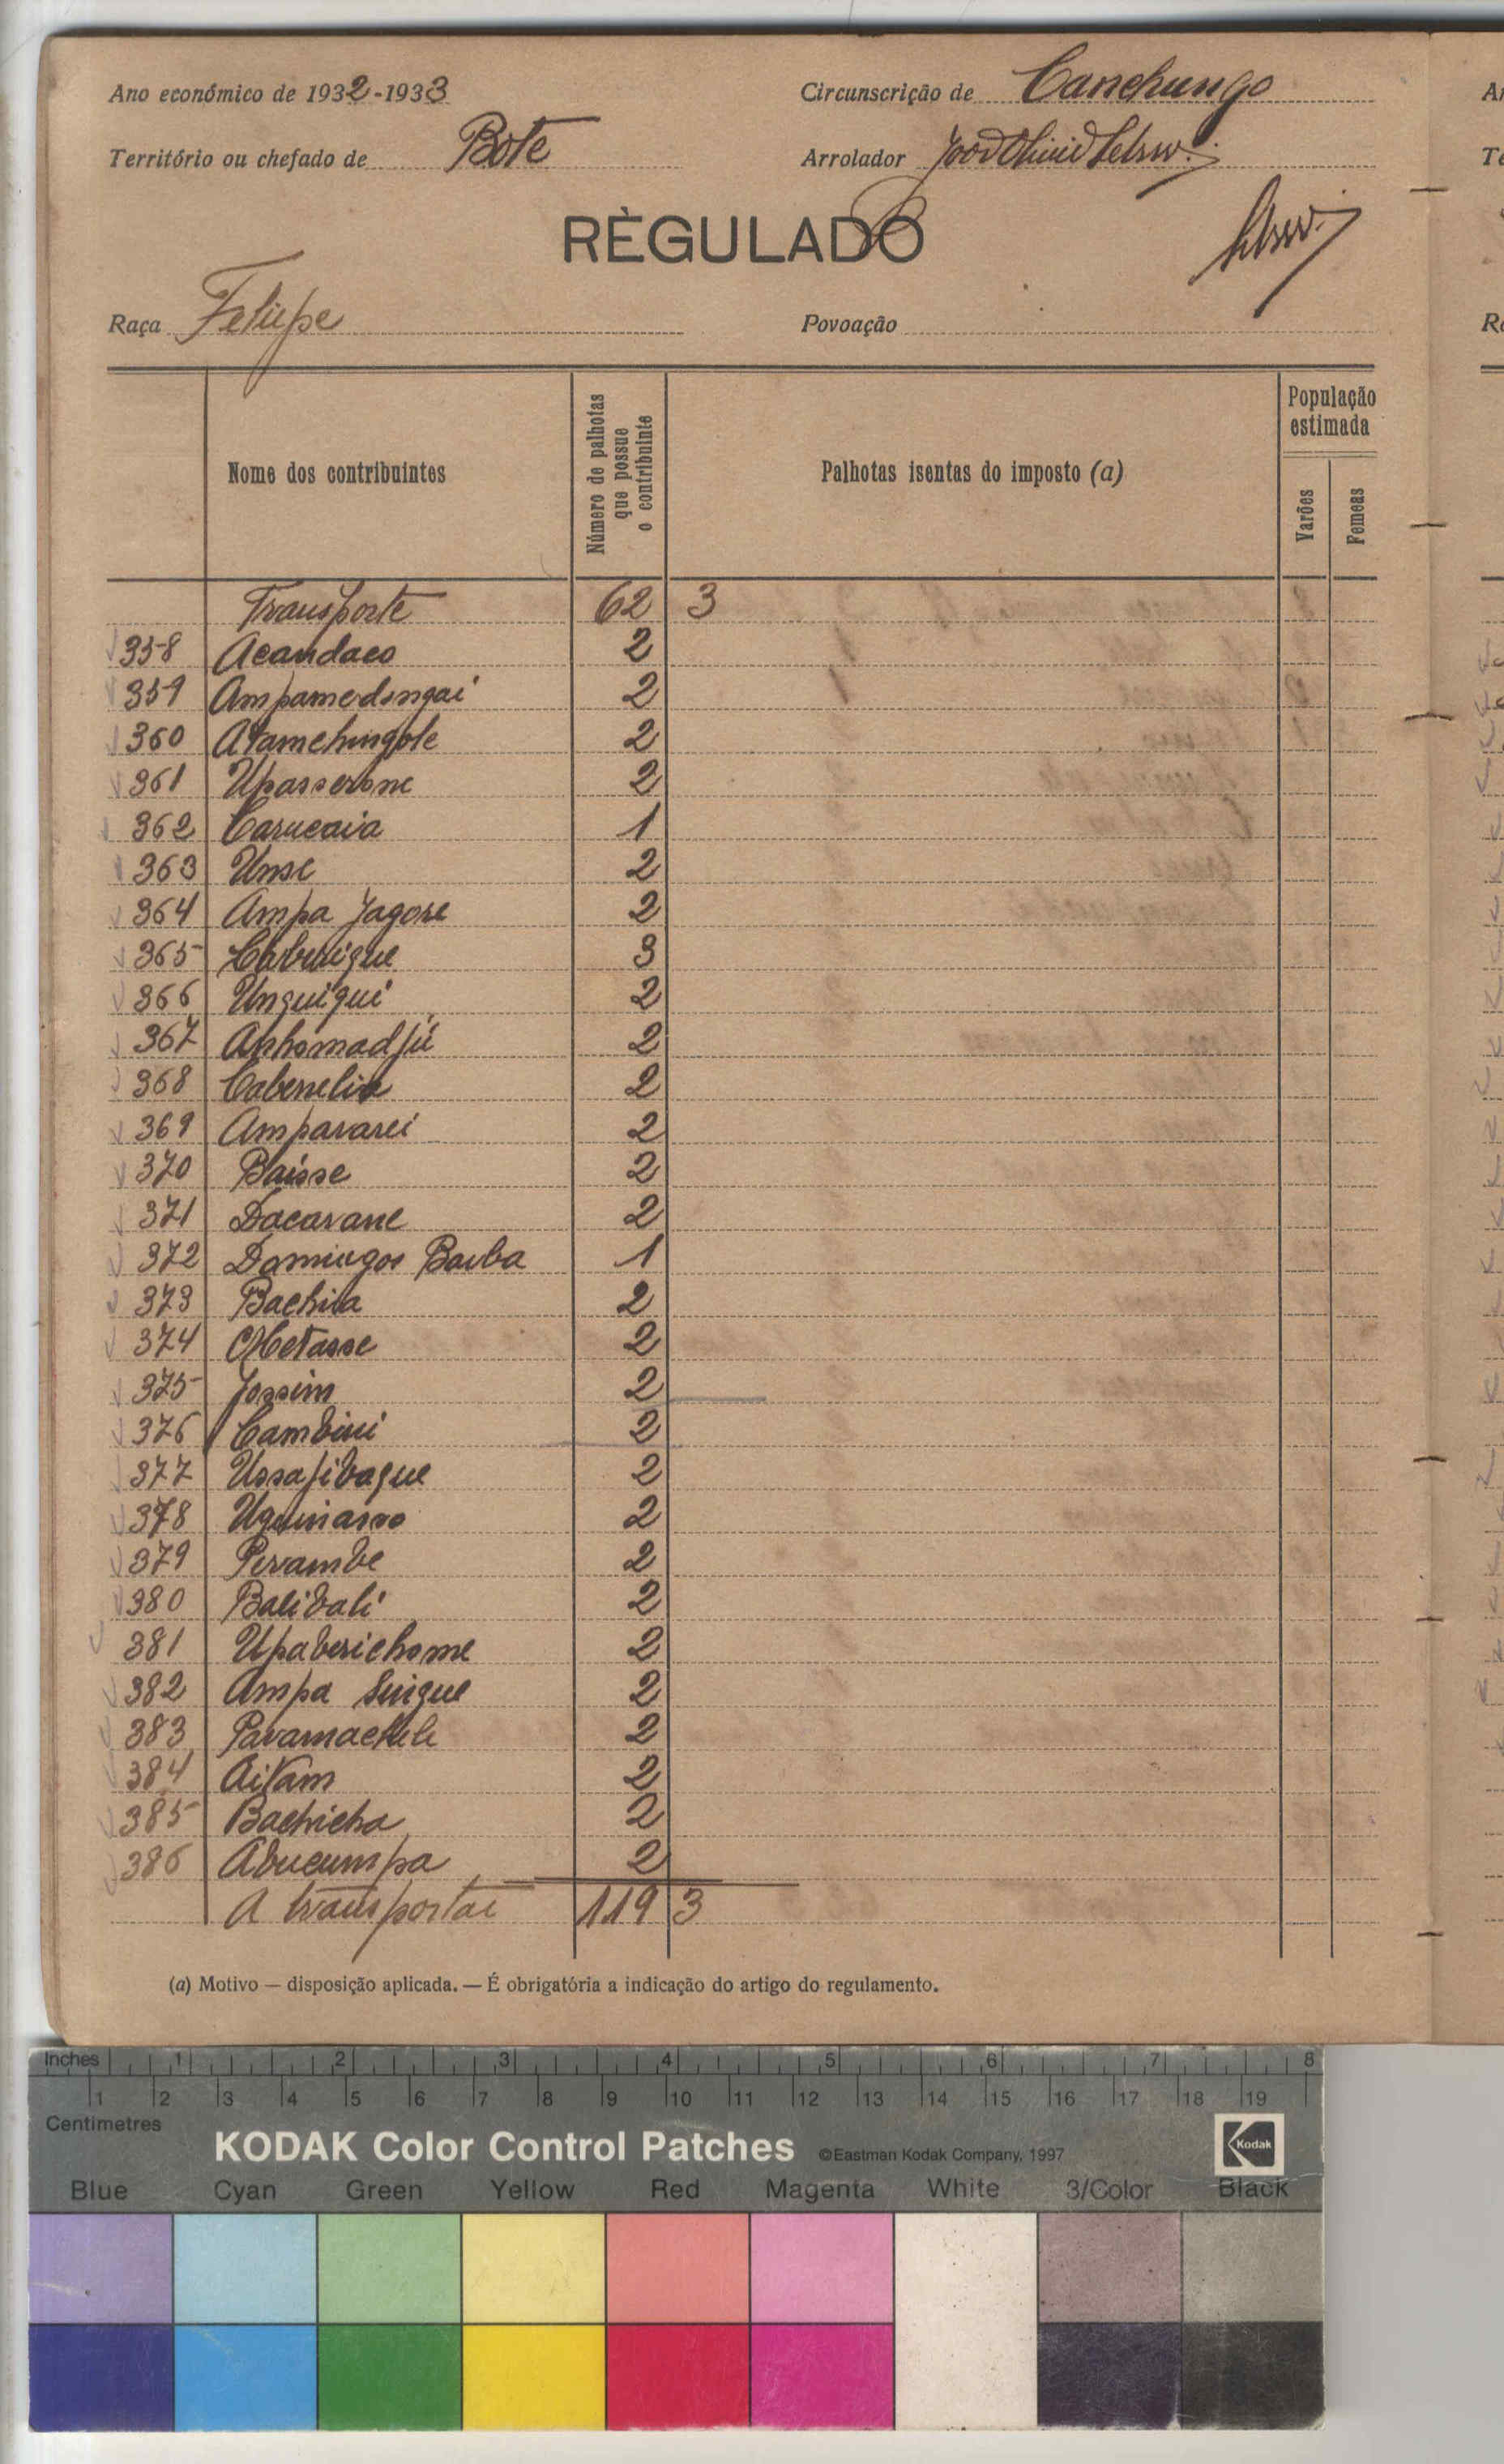 Ano económico de 1932-1933
Circunscrição de Canchungo
Território ou chefado de Bote
Arrolador
RÈGULADO
Raça Feliepe
Povoação
Nome dos contribuintes
Número de palhotas que possue o contribuinte
Palhotas isentas do imposto (a)
População estimada
Varões
Femeas
Transporte 62 3
358 Acandaco 2
359 Ampamedongai 2
360 Atamchingole 2
361 Upasserone 2
362 Carucaia 1
363 Unse 2
364 Ampa Jagore 2
365 Cabuigue 3
366 Unguigui 2
367 Aphomadjú 2
368 Cabenelia 2
369 Ampararei 2
370 Baisse 2
371 Dacarane 2
372 Domingos Barba 1
373 Bachila 2
374 Metasse 2
375 Jossim 2
376 Cambini 2
377 Ussafibague 2
378 Uguinasso 2
379 Perambe 2
380 Balibali 2
381 Upaberichome 2
382 Ampa Suigue 2
383 Pavamachele 2
384 Aitam 2
385 Bachicha 2
386 Abucumpa 2
A transportar 119 3
(a) Motivo — disposição aplicada. — É obrigatória a indicação do artigo do regulamento.
Inches 1 2 3 4 5 6 7 8
1 2 3 4 5 6 7 8 9 10 11 12 13 14 15 16 17 18 19
Centimetres
KODAK Color Control Patches ©Eastman Kodak Company, 1997 Kodak
Blue Cyan Green Yellow Red Magenta White 3/Color Black